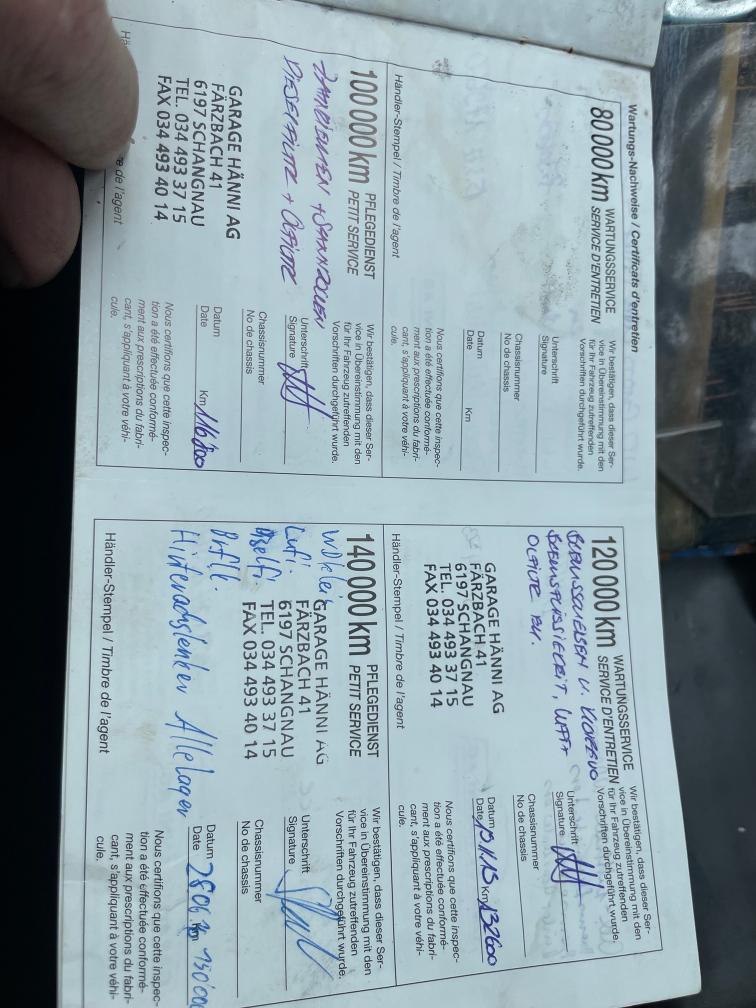 Wartungs-Nachweise / Certificats d'entretien
80 000 km WARTUNGSSERVICE
SERVICE D'ENTRETIEN
Wir bestätigen, dass dieser Ser-
vice in Übereinstimmung mit den
für Ihr Fahrzeug zutreffenden
Vorschriften durchgeführt wurde.
Unterschrift
Signature
Chassisnummer
No de chassis
Datum
Date
Km
Nous certifions que cette inspec-
tion a été effectuée conformé-
ment aux prescriptions du fabri-
cant, s'appliquant à votre véhi-
cule.
Händler-Stempel / Timbre de l'agent
100 000 km PFLEGEDIENST
PETIT SERVICE
ZAHNRIEMEN + SPANNROLLEN
DIESELFILTER + OELFILTER
GARAGE HÄNNI AG
FÄRZBACH 41
6197 SCHANGNAU
TEL. 034 493 37 15
FAX 034 493 40 14
Wir bestätigen, dass dieser Ser-
vice in Übereinstimmung mit den
für Ihr Fahrzeug zutreffenden
Vorschriften durchgeführt wurde.
Unterschrift
Signature
Chassisnummer
No de chassis
Datum
Date
Km 116'000
Nous certifions que cette inspec-
tion a été effectuée conformé-
ment aux prescriptions du fabri-
cant, s'appliquant à votre véhi-
cule.
Hä
de l'agent
120 000 km WARTUNGSSERVICE
SERVICE D'ENTRETIEN
BREMSSCHEIBEN U.
BREMSFLÜSSIGKEIT,
OELFILTER
GARAGE HÄNNI AG
FÄRZBACH 41
6197 SCHANGNAU
TEL. 034 493 37 15
FAX 034 493 40 14
Wir bestätigen, dass dieser Ser-
vice in Übereinstimmung mit den
für Ihr Fahrzeug zutreffenden
Vorschriften durchgeführt wurde.
Unterschrift
Signature
Chassisnummer
No de chassis
Datum
Date
Km 132'600
Nous certifions que cette inspec-
tion a été effectuée conformé-
ment aux prescriptions du fabri-
cant, s'appliquant à votre véhi-
cule.
Händler-Stempel / Timbre de l'agent
140 000 km PFLEGEDIENST
PETIT SERVICE
Lufi.
Hinterachslenker Alle Lager
GARAGE HÄNNI AG
FÄRZBACH 41
6197 SCHANGNAU
TEL. 034 493 37 15
FAX 034 493 40 14
Wir bestätigen, dass dieser Ser-
vice in Übereinstimmung mit den
für Ihr Fahrzeug zutreffenden
Vorschriften durchgeführt wurde.
Unterschrift
Signature
Chassisnummer
No de chassis
Datum
Date
Km
Nous certifions que cette inspec-
tion a été effectuée conformé-
ment aux prescriptions du fabri-
cant, s'appliquant à votre véhi-
cule.
Händler-Stempel / Timbre de l'agent